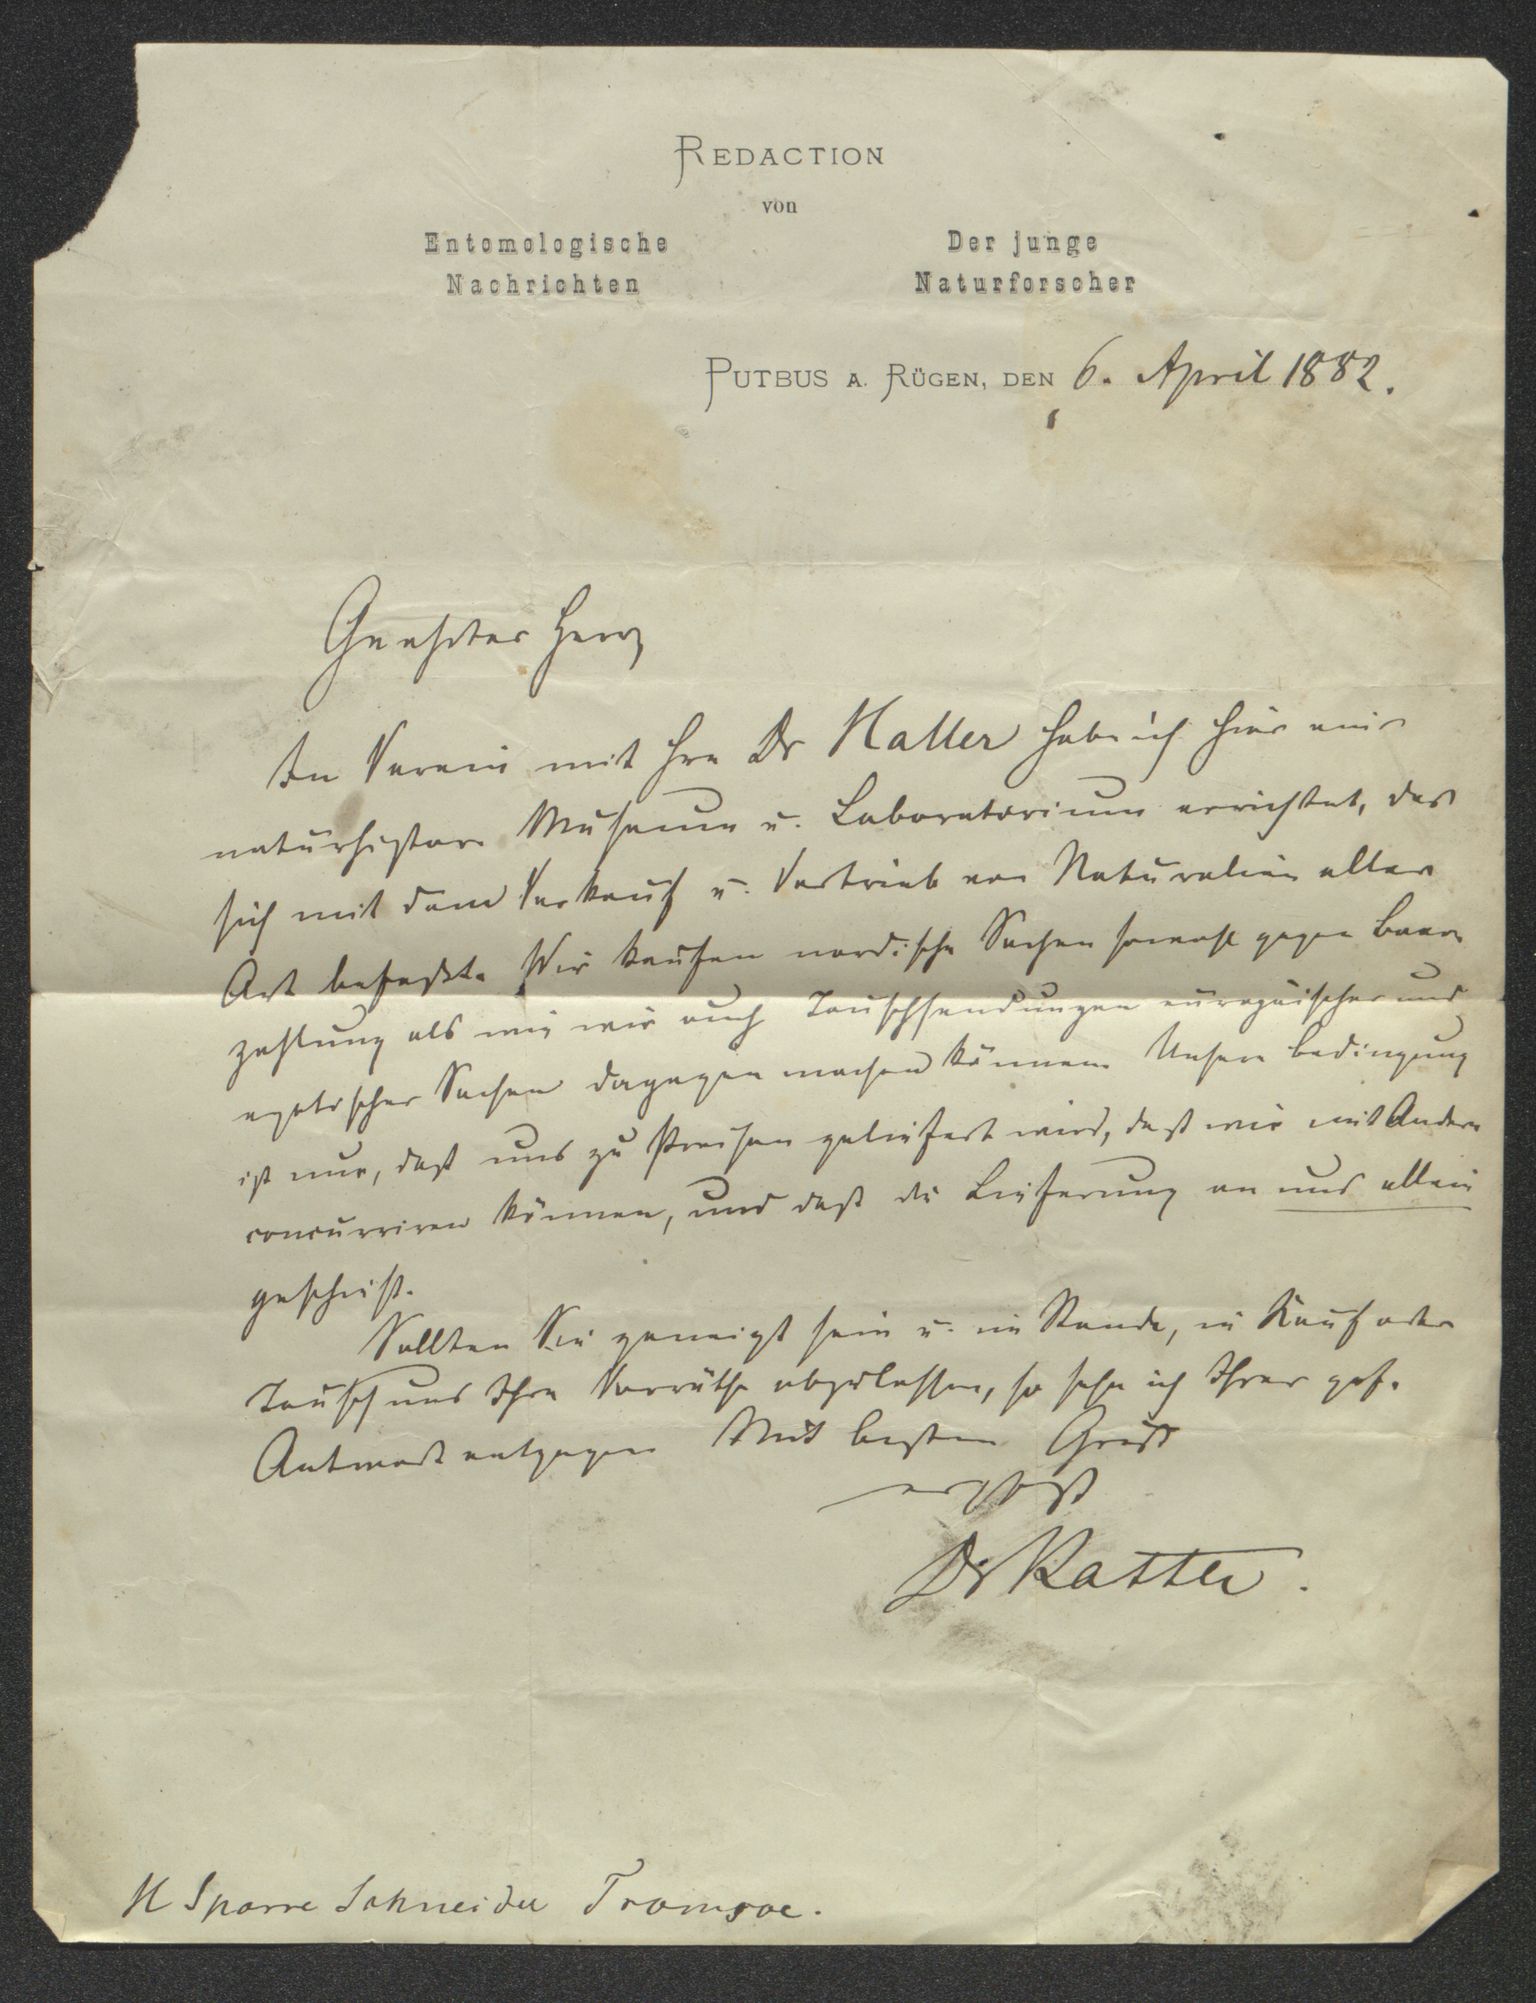 REDACTION
von
Entomologische
Nachrichten
Der junge
Naturforscher
PUTBUS A. RÜGEN, DEN 6. April 1882.
Geehrter Herr
Im Verein mit Hrn Dr Haller habe ich hier ein
naturhistor. Museum u. Laboratorium errichtet, das
sich mit dem Verkauf u. Vertrieb von Naturalien aller
Art befaßt. Wir kaufen nordische Sachen sowohl gegen Baar-
zahlung als wie wir auch Tauschsendungen europäischer und
exotischer Sachen dagegen machen können. Unsere Bedingung
ist nur, daß uns zu Preisen geliefert wird, daß wir mit Andern
concurriren können, und daß die Lieferung an uns allein
geschieht.
Sollten Sie geneigt sein u. im Stande, in Kauf oder
Tausch uns Ihre Vorräthe abzulassen, so sehe ich Ihrer gef.
Antwort entgegen Mit bestem Gruß
ergbst
Dr Katter.
H Sparre Schneider Tromsoe.